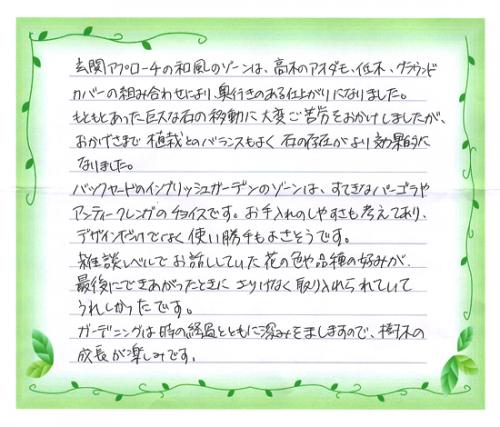 玄関アプローチの和風のゾーンは、高木のアオダモ、低木、グラウンド
カバーの組み合わせにより、奥行きのある仕上がりになりました。
もともとあった巨大な石の移動に大変ご苦労をおかけしましたが、
おかげさまで植栽とのバランスもよく石の存在がより効果的に
なりました。
バックヤードのイングリッシュガーデンのゾーンは、すてきなパーゴラや
アンティークレンガのチョイスです。お手入れのしやすさも考えてあり、
デザインだけでなく使い勝手もよさそうです。
雑談レベルでお話ししていた花の色や品種の好みが、
最後にできあがったときにさりげなく取り入れられていて
うれしかったです。
ガーデニングは時の経過とともに深みをましますので、樹木の
成長が楽しみです。